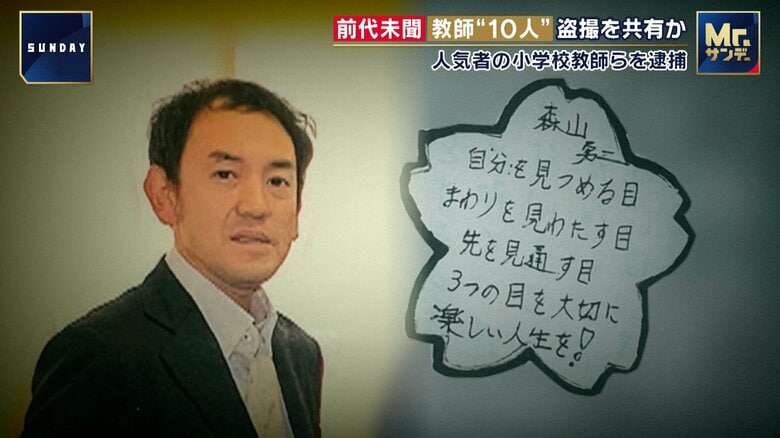 SUNDAY
前代未聞 教師“10人” 盗撮を共有か
人気者の小学校教師らを逮捕
Mr.
サンデー
森山
勇二
自分を見つめる目
まわりを見わたす目
先を見通す目
3つの目を大切に
楽しい人生を!